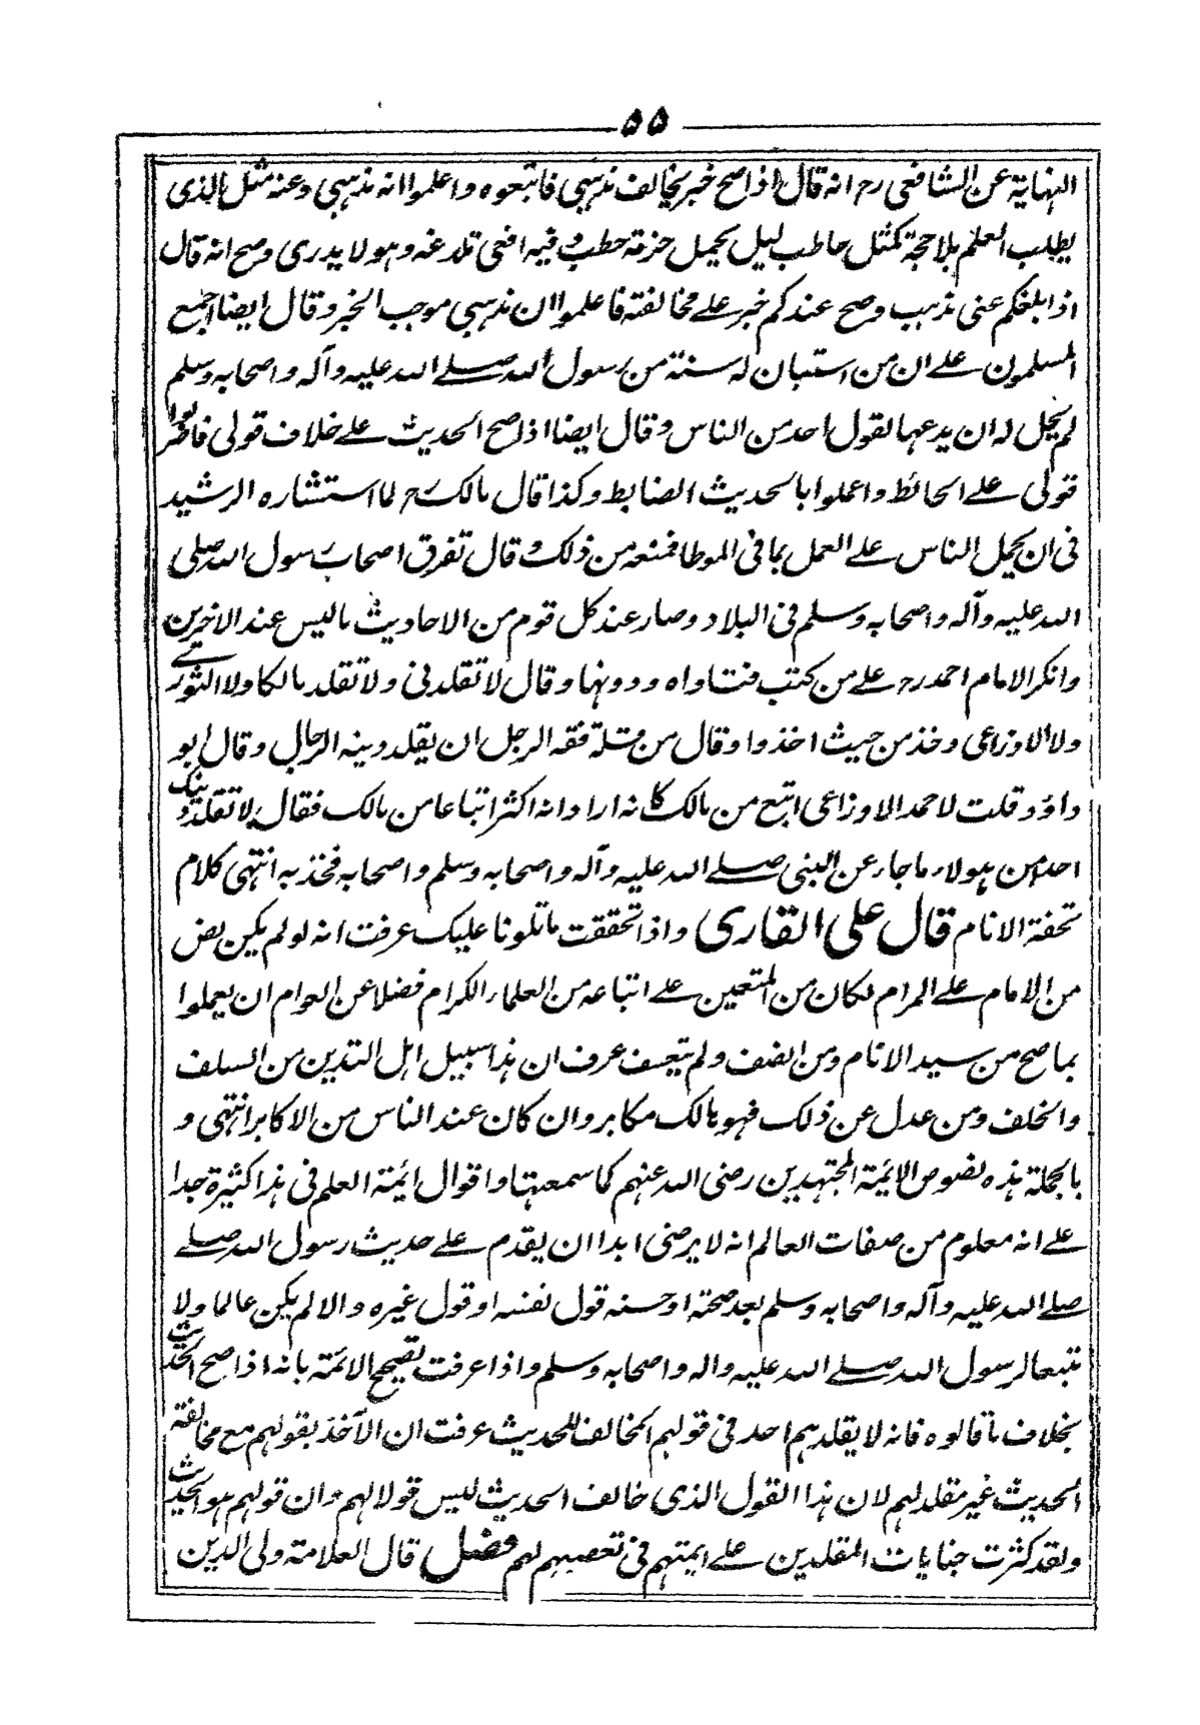 ۵۵
النهاية عن الشافعي رح انه قال اذا صح خبر يخالف مذهبي فاتبعوه واعلموا انه مذهبي وعنه مثل الذي
يطلب العلم بلا حجة كمثل حاطب ليل يحمل حزمة حطب وفيه افعى تلدغه وهو لا يدري وصح انه قال
اذا بلغكم عني مذهب وصح عندكم خبر على مخالفته فاعلموا ان مذهبي موجب الخبر وقال ايضا اجمع
المسلمون على ان من استبان له سنة من رسول الله صلى الله عليه وآله واصحابه وسلم
لم يحل له ان يدعها لقول احد من الناس وقال ايضا اذا صح الحديث على خلاف قولي فاضربوا
قولي على الحائط واعملوا بالحديث الضابط وكذا قال مالك رح لما استشاره الرشيد
في ان يحمل الناس على العمل بما في الموطا فمنعه من ذلك وقال تفرق اصحاب رسول الله صلى
الله عليه وآله واصحابه وسلم في البلاد وصار عند كل قوم من الاحاديث ما ليس عند الاخرين
وانكر الامام احمد رح على من كتب فتاواه ودونها وقال لا تقلدني ولا تقلد مالكا ولا الثوري
ولا الاوزاعي وخذ من حيث اخذوا وقال من قلة فقه الرجل ان يقلد دينه الرجال وقال ابو
داؤد قلت لاحمد الاوزاعي اتبع من مالك كانه اراد انه اكثر اتباعا من مالك فقال لا تقلد دينك
احدا من هولاء ما جاء عن النبي صلى الله عليه وآله واصحابه وسلم واصحابه فخذ به انتهى كلام
تحفة الانام قال علي القاري واذا تحققت ما تلونا عليك عرفت انه لو لم يكن نص
من الامام على المرام لكان من المتعين على اتباعه من العلماء الكرام فضلا عن العوام ان يعملوا
بما صح من سيد الانام ومن انصف ولم يتعسف عرف ان هذا سبيل اهل التدين من السلف
والخلف ومن عدل عن ذلك فهو هالك مكابر وان كان عند الناس من الاكابر انتهى و
بالجملة هذه نصوص الائمة المجتهدين رضي الله عنهم كما سمعتها واقوال ائمة العلم في هذا كثيرة جدا
على انه معلوم من صفات العالم انه لا يرضى ابدا ان يقدم على حديث رسول الله صلى
صلى الله عليه وآله واصحابه وسلم بعد صحته او حسنه قول نفسه او قول غيره والا لم يكن عالما ولا
متبعا لرسول الله صلى الله عليه واله واصحابه وسلم واذا عرفت تصريح الائمة بانه اذا صح الحديث
بخلاف ما قالوه فانه لا يقلدهم احد في قولهم المخالف للحديث عرفت ان الآخذ بقولهم مع مخالفة
الحديث غير مقلد لهم لان هذا القول الذي خالف الحديث ليس قولا لهم وان قولهم هو الحديث
ولقد كثرت جنايات المقلدين على ايمتهم في تعصبهم لهم فصل قال العلامة ولي الدين